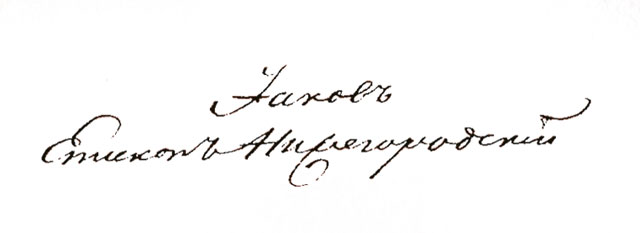 Іаковъ
Епископъ Нижегородскій